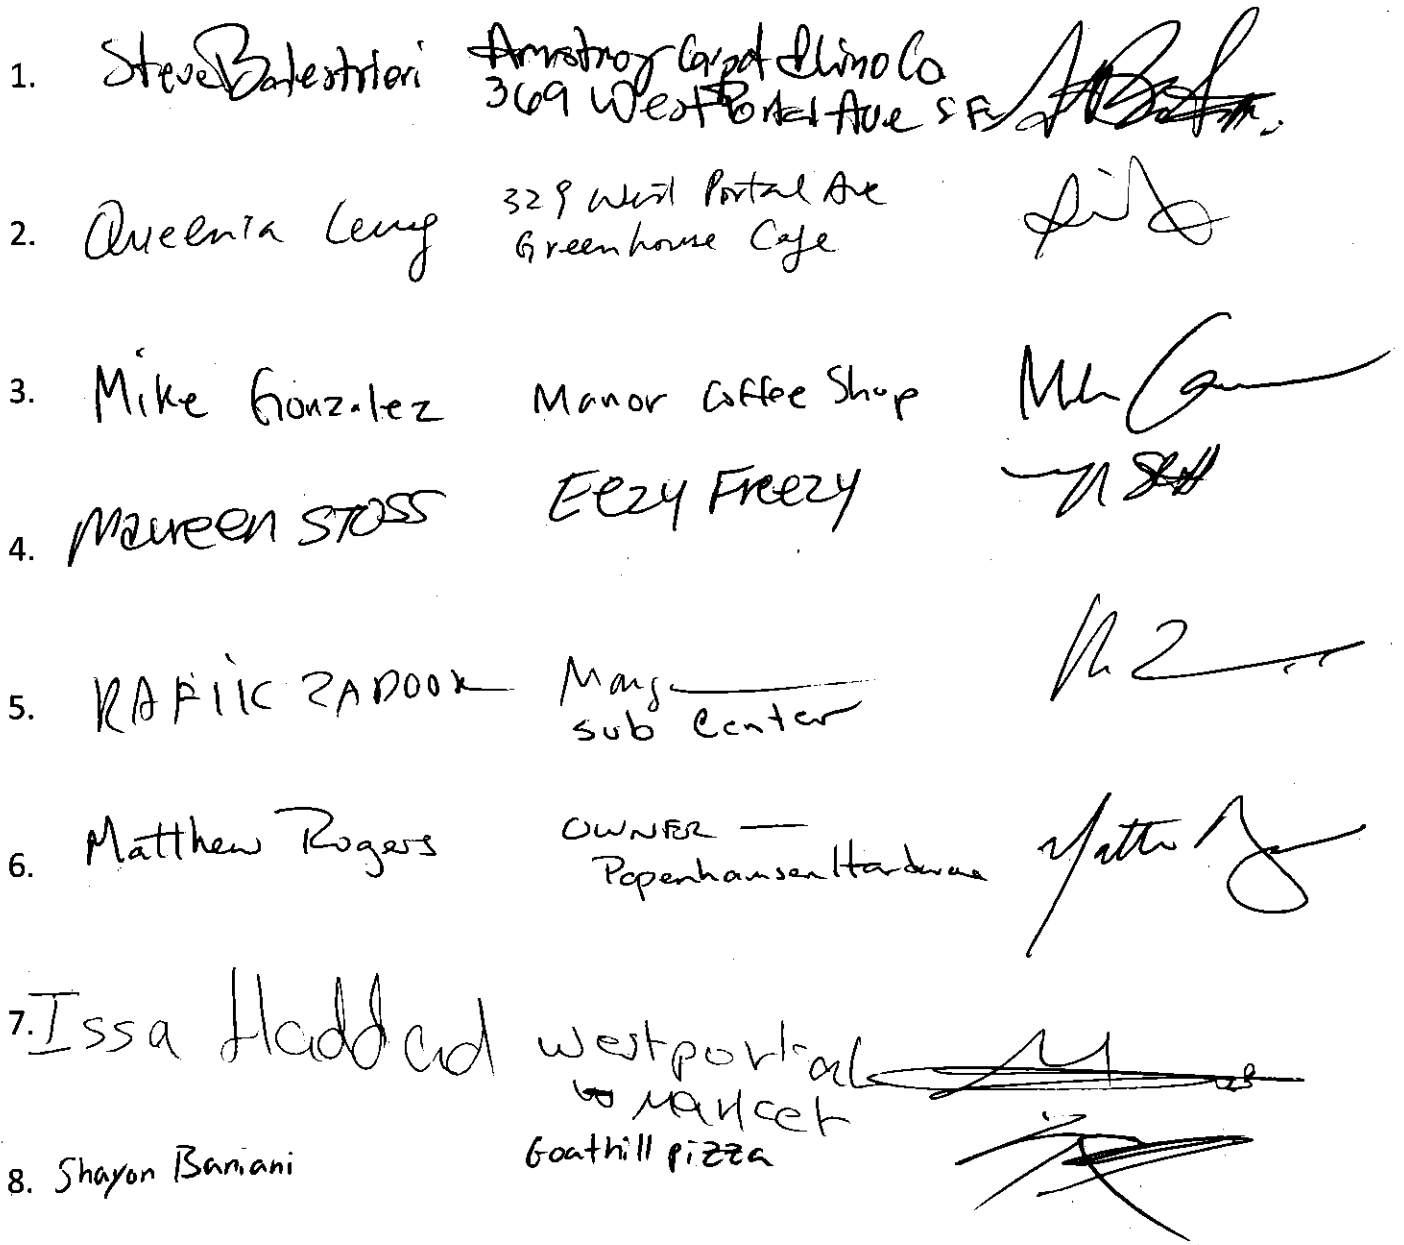 1. Steve Balestrieri Armstrong Carpet & Lino Co
369 West Portal Ave SF
2. Queenia Leung 329 West Portal Ave
Greenhouse Cafe
3. Mike Gonzalez Manor Coffee Shop
4. Maureen Stoss Eezy Freezy
5. RAFIIC ZADOOK
sub Center
6. Matthew Rogers OWNER —
Papenhausen Hardware
7. Issa Haddad westportal
Market
8. Shayon Baniani Goathill pizza